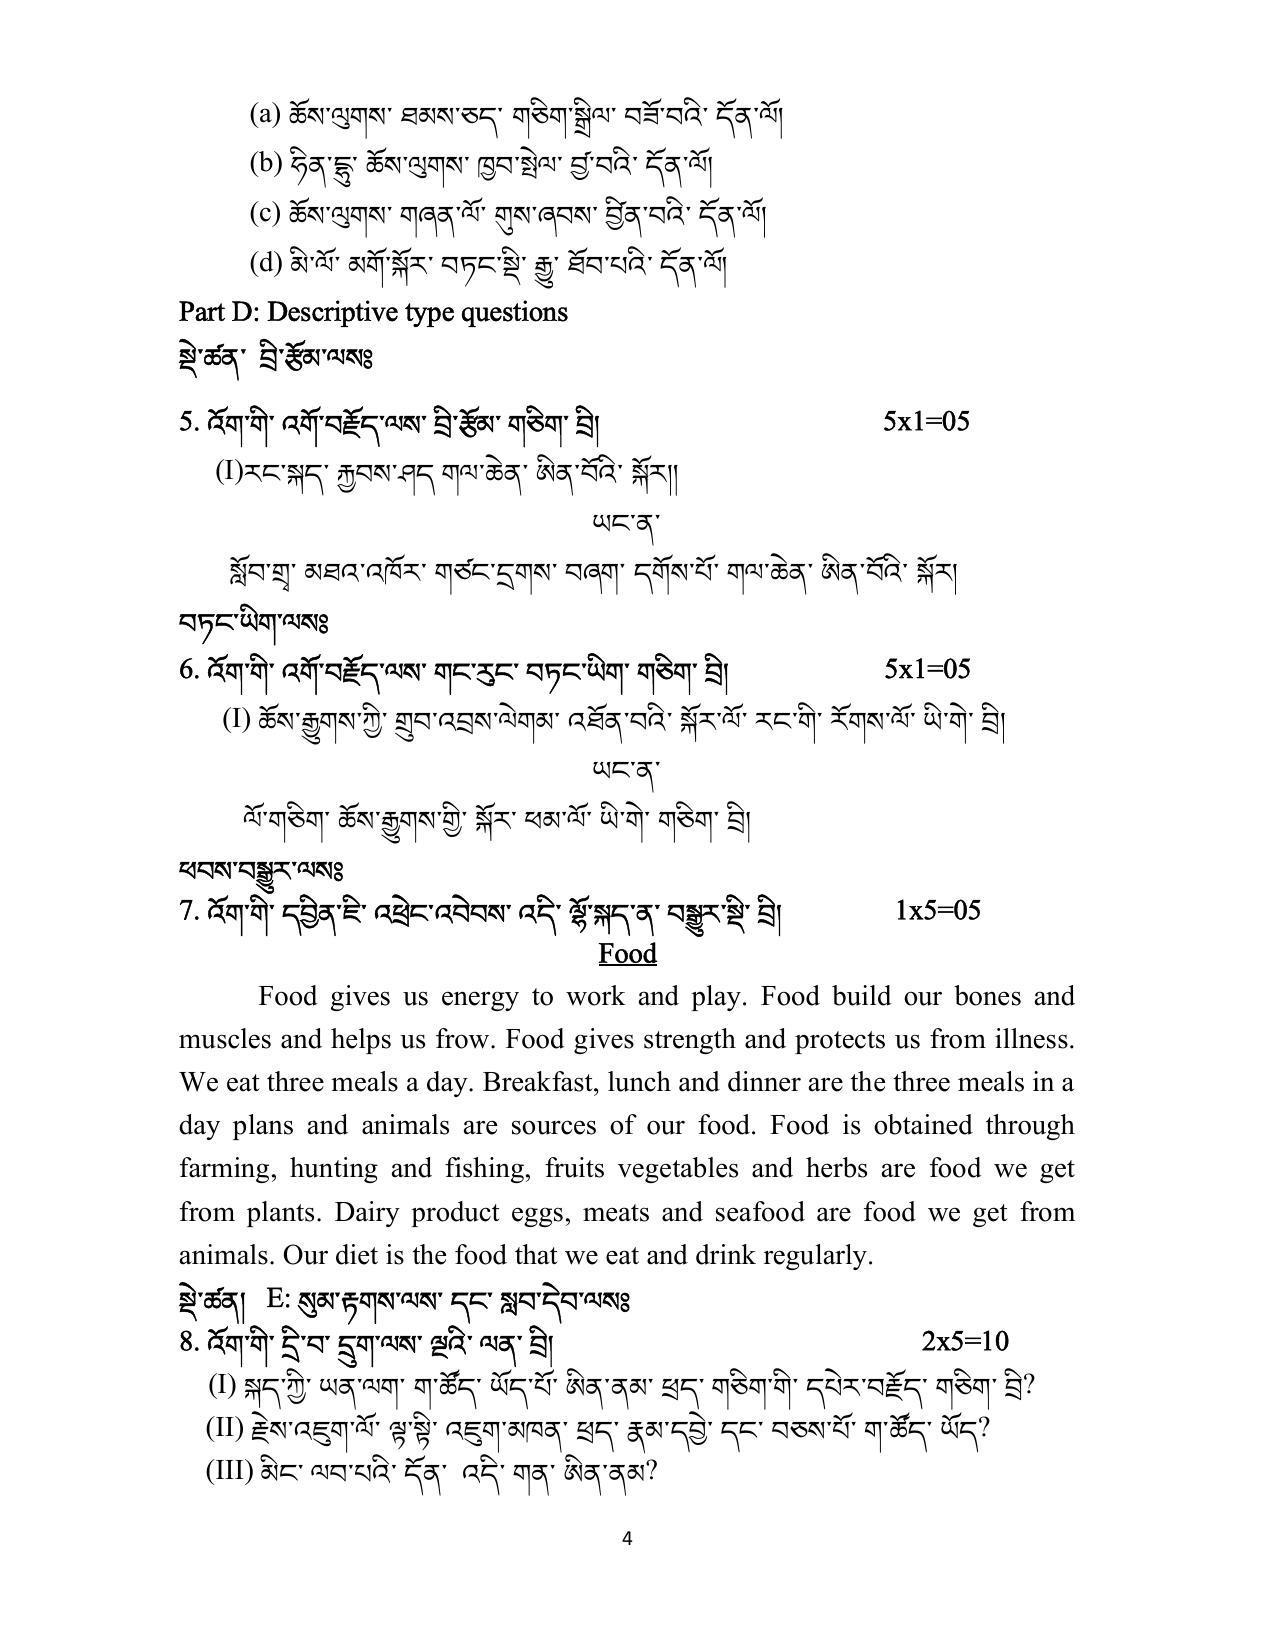 (a) ཆོས་ལུགས་ ཐམས་ཅད་ གཅིག་སྒྲིལ་ བཟོ་བའི་ དོན་ལོ།
(b) ཧིན་དྷུ་ ཆོས་ལུགས་ ཁྱབ་སྤེལ་ བྱ་བའི་ དོན་ལོ།
(c) ཆོས་ལུགས་ གཞན་ལོ་ གུས་ཞབས་ བྱིན་བའི་ དོན་ལོ།
(d) མི་ལོ་ མགོ་སྐོར་ བཏང་སྡི་ རྒྱུ་ ཐོབ་པའི་ དོན་ལོ།
Part D: Descriptive type questions
སྡེ་ཚན་ བྲི་རྩོམ་ལསཿ
5. འོག་གི་ འགོ་བརྗོད་ལས་ བྲི་རྩོམ་ གཅིག་ བྲི། 5x1=05
(I)རང་སྐད་ རྐྱབས་ཤད གལ་ཆེན་ ཨིན་བོའི་ སྐོར།།
ཡང་ན་
སློབ་གྲྭ་ མཐའ་འཁོར་ གཙང་དྲགས་ བཞག་ དགོས་པོ་ གལ་ཆེན་ ཨིན་བོའི་ སྐོར།
བཏང་ཡིག་ལསཿ
6. འོག་གི་ འགོ་བརྗོད་ལས་ གང་རུང་ བཏང་ཡིག་ གཅིག་ བྲི། 5x1=05
(I) ཆོས་རྒྱུགས་ཀྱི་ གྲུབ་འབྲས་ལེགམ་ འཐོན་བའི་ སྐོར་ལོ་ རང་གི་ རོགས་ལོ་ ཡི་གེ་ བྲི།
ཡང་ན་
ལོ་གཅིག་ ཆོས་རྒྱུགས་གྱི་ སྐོར་ ཕམ་ལོ་ ཡི་གེ་ གཅིག་ བྲི།
ཕབས་བསྒྱུར་ལསཿ
7. འོག་གི་ དབྱིན་ཇི་ འཕྲེང་འབེབས་ འདི་ ལྷོ་སྐད་ན་ བསྒྱུར་སྡི་ བྲི། 1x5=05
Food
Food gives us energy to work and play. Food build our bones and
muscles and helps us frow. Food gives strength and protects us from illness.
We eat three meals a day. Breakfast, lunch and dinner are the three meals in a
day plans and animals are sources of our food. Food is obtained through
farming, hunting and fishing, fruits vegetables and herbs are food we get
from plants. Dairy product eggs, meats and seafood are food we get from
animals. Our diet is the food that we eat and drink regularly.
སྡེ་ཚན། E: སུམ་རྟགས་ལས་ དང་ སློབ་དེབ་ལསཿ
8. འོག་གི་ དྲི་བ་ དྲུག་ལས་ ལྔའི་ ལན་ བྲི། 2x5=10
(I) སྐད་ཀྱི་ ཡན་ལག་ ག་ཚོད་ ཡོད་པོ་ ཨིན་ནམ་ ཕྲད་ གཅིག་གི་ དཔེར་བརྗོད་ གཅིག་ བྲི?
(II) རྗེས་འཇུག་ལོ་ ལྟ་སྟི་ འཇུག་མཁན་ ཕྲད་ རྣམ་དབྱེ་ དང་ བཅས་པོ་ ག་ཚོད་ ཡོད?
(III) མིང་ ལབ་པའི་ དོན་ འདི་ གན་ ཨིན་ནམ?
4